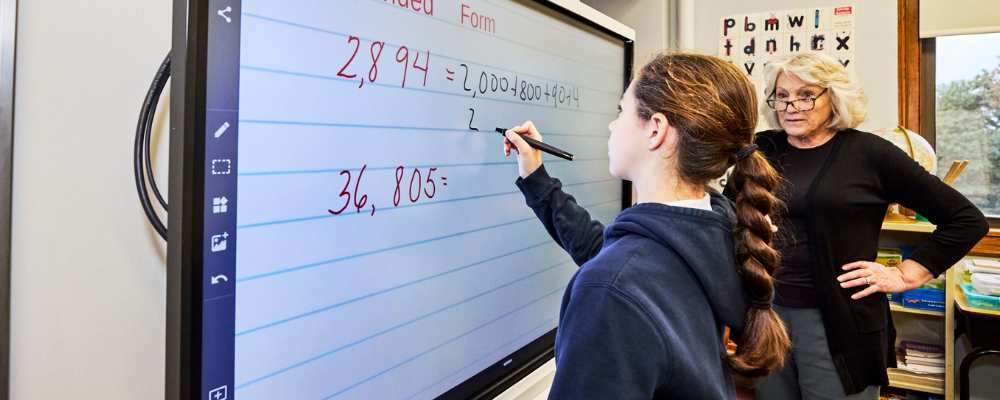 Form
2,894 = 2,000+800+90+4
2
36,805=
p b m w l
t d n h x